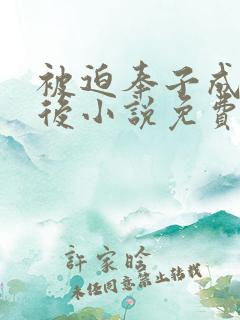 被迫奉子成
後小說免費
許家晗
未经同意禁止转载